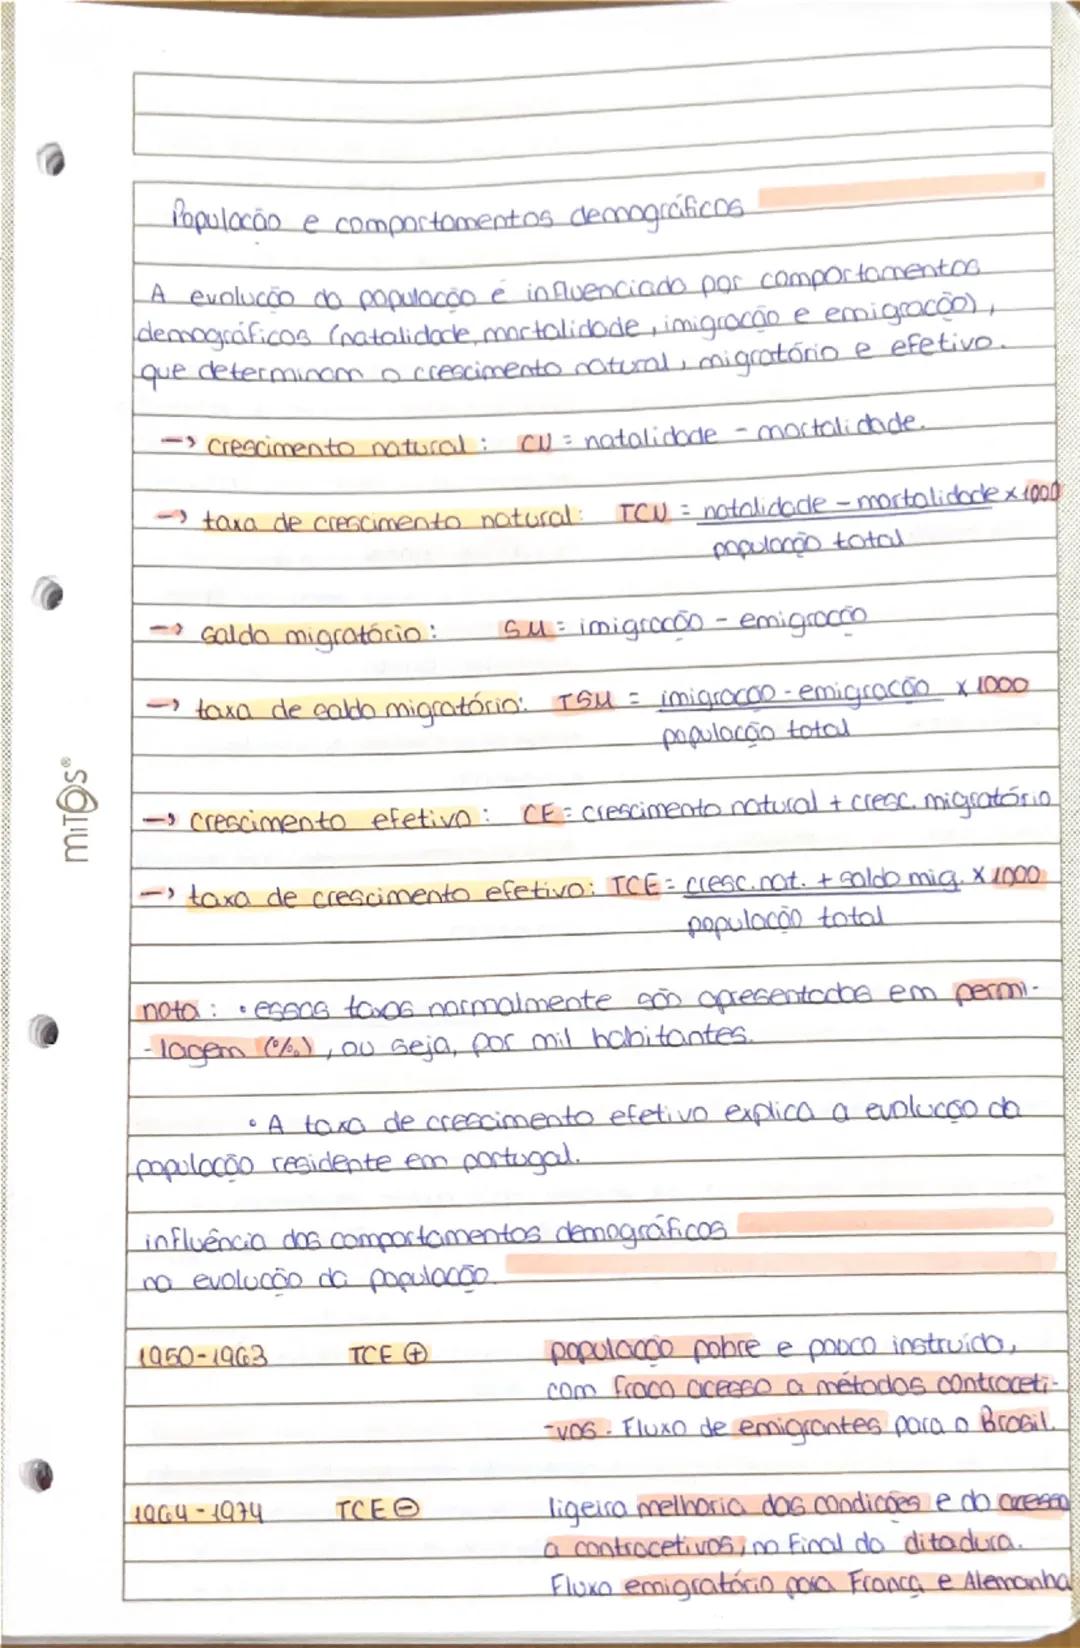 População e comportamentos demográficos
A evolução da população é influenciada por comportamentos
demográficos (natalidade, mortalidade, imigração e emigração),
que determinam o crescimento natural, migratório e efetivo.
→ crescimento natural : CN = natalidade - mortalidade.
→ taxa de crescimento natural: TCN = natalidade - mortalidade x 1000
população total
→ saldo migratório : SM = imigração - emigração
→ taxa de saldo migratório: TSM = imigração - emigração x 1000
população total
→ crescimento efetivo : CE = crescimento natural + cresc. migratório
→ taxa de crescimento efetivo: TCE = cresc. nat. + saldo mig. x 1000
população total
nota : • essas taxas normalmente são apresentadas em permi-
-lagem (‰), ou seja, por mil habitantes.
• A taxa de crescimento efetivo explica a evolução da
população residente em portugal.
influência dos comportamentos demográficos
na evolução da população
1950-1963 TCE ⊕ população pobre e pouco instruída,
com fraco acesso a métodos contraceti-
-vos. Fluxo de emigrantes para o Brasil.
1964-1974 TCE ⊖ ligeira melhoria das condições e do acesso
a contracetivos, no final da ditadura.
Fluxo emigratório para França e Alemanha
miTOs®